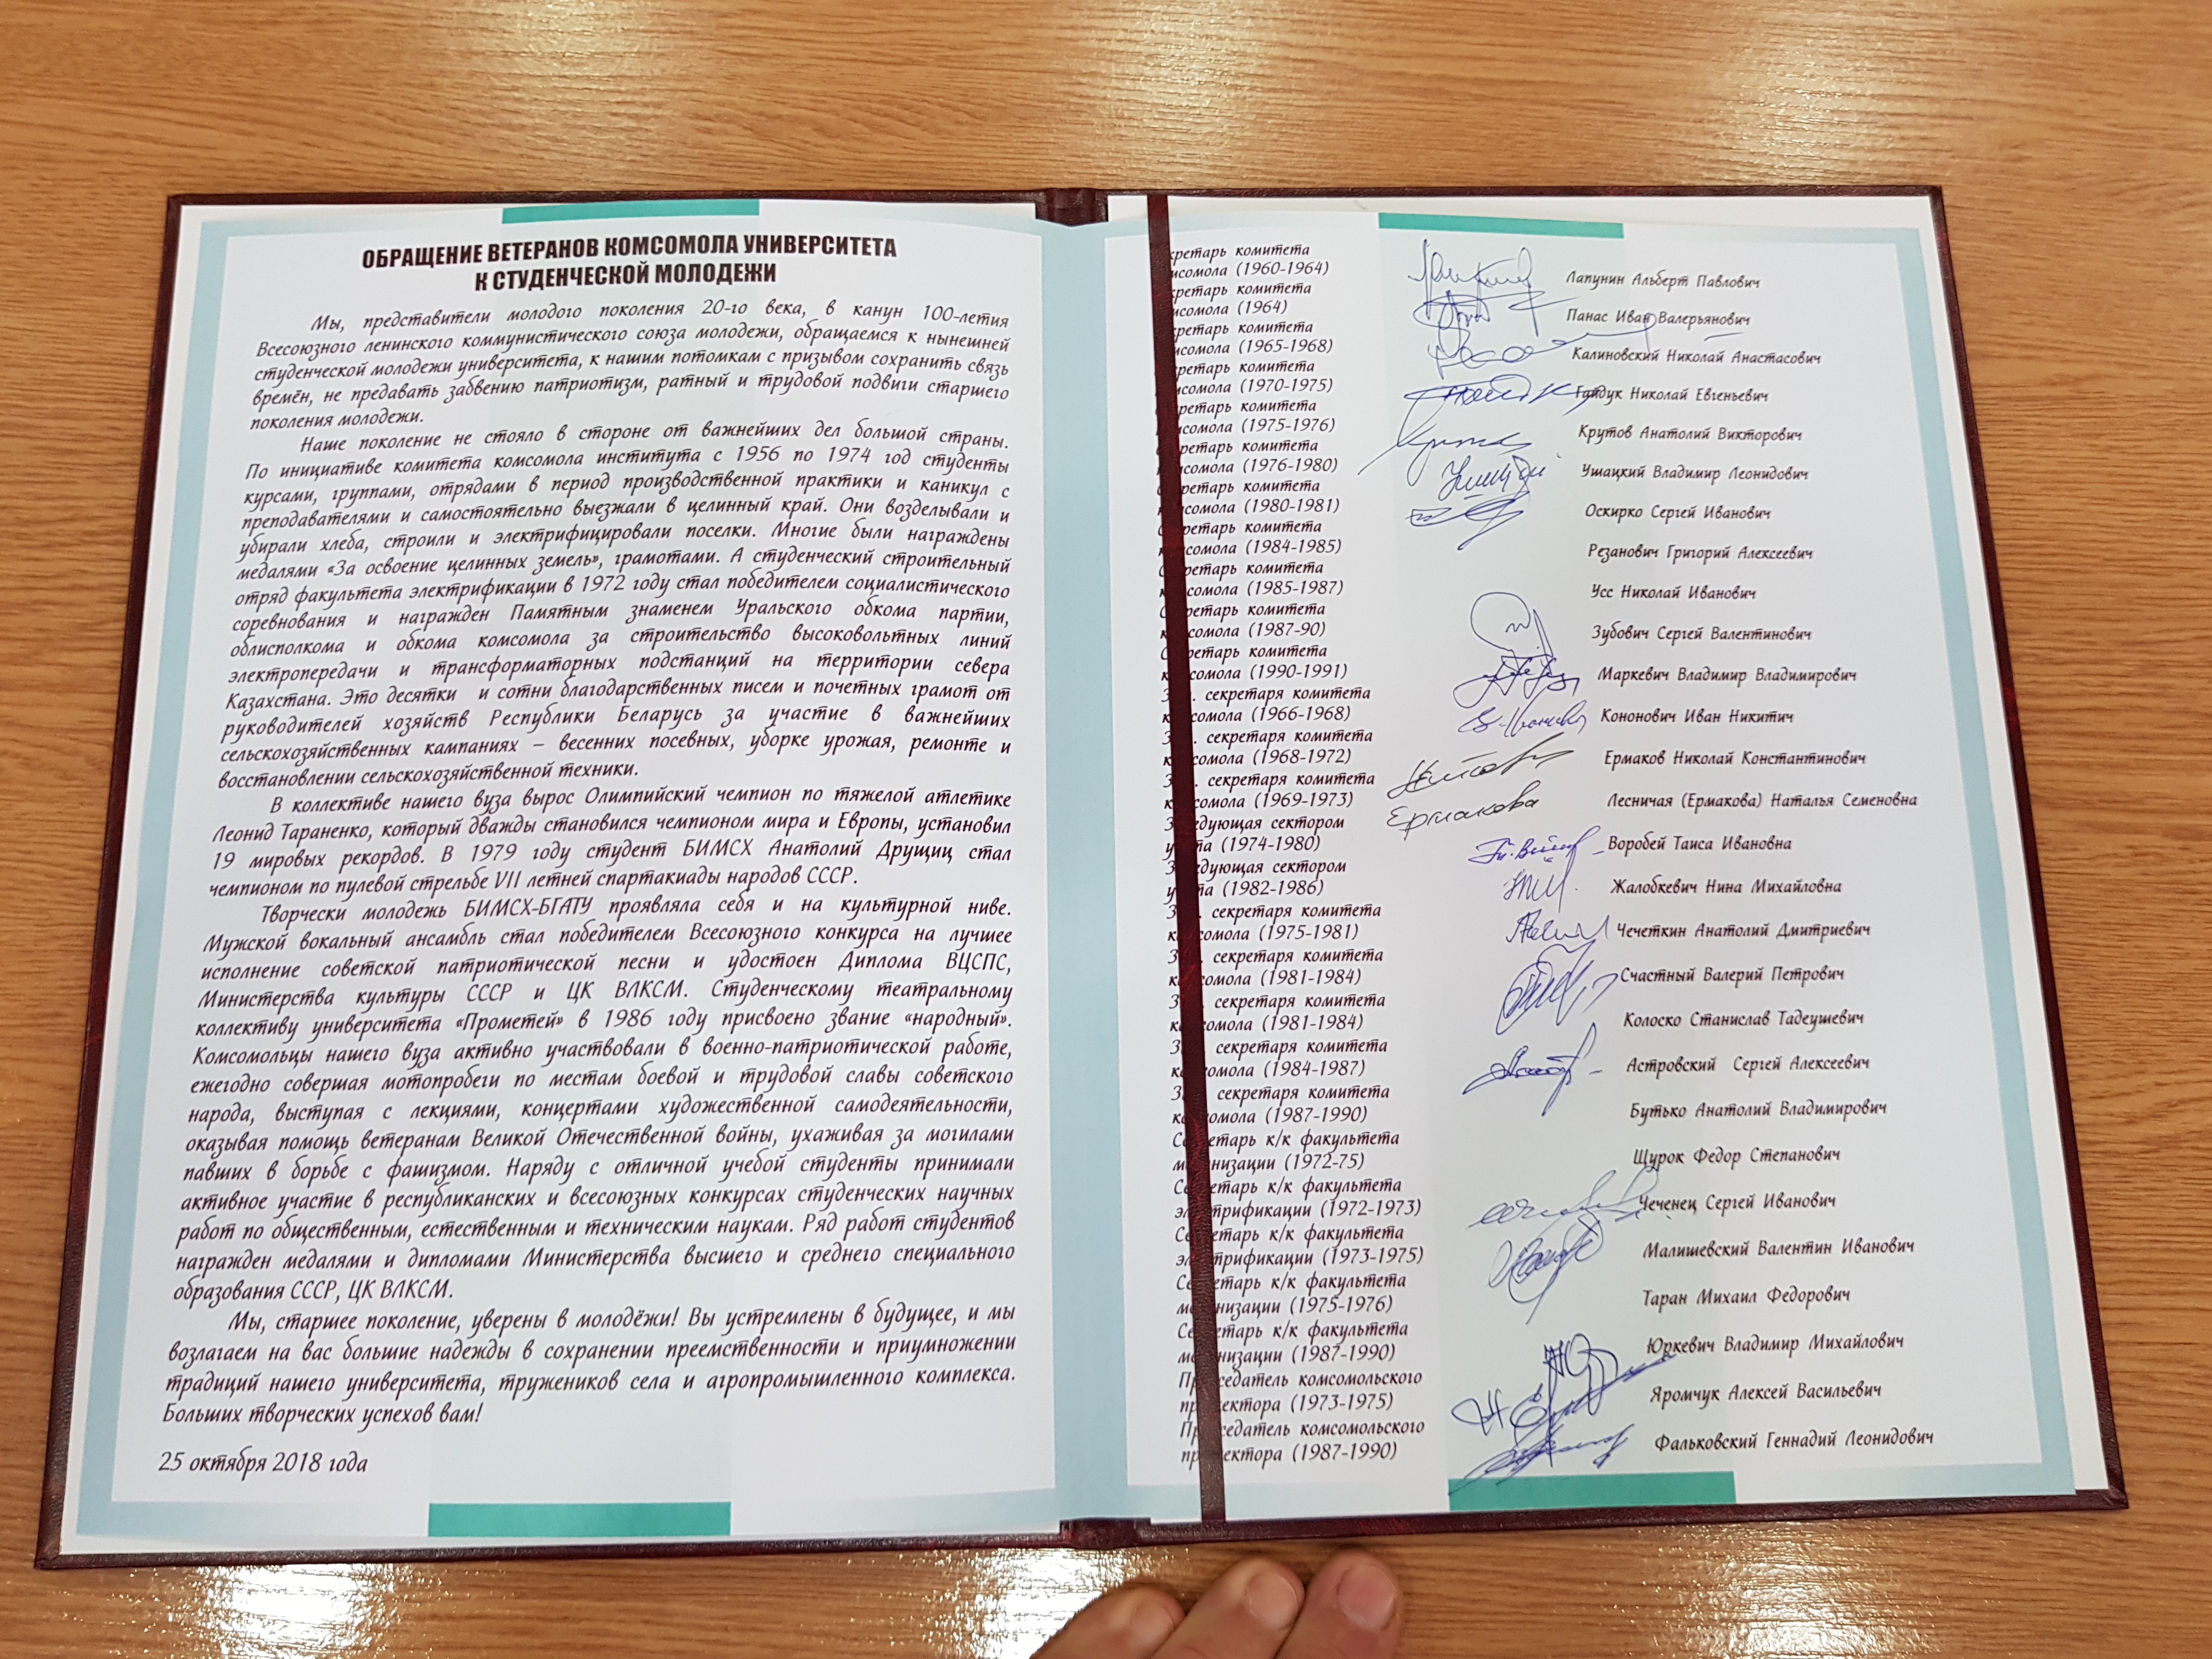 ОБРАЩЕНИЕ ВЕТЕРАНОВ КОМСОМОЛА УНИВЕРСИТЕТА
К СТУДЕНЧЕСКОЙ МОЛОДЕЖИ
Мы, представители молодого поколения 20-го века, в канун 100-летия
Всесоюзного ленинского коммунистического союза молодежи, обращаемся к нынешней
студенческой молодежи университета, к нашим потомкам с призывом сохранить связь
времён, не предавать забвению патриотизм, ратный и трудовой подвиги старшего
поколения молодежи.
Наше поколение не стояло в стороне от важнейших дел большой страны.
По инициативе комитета комсомола института с 1956 по 1974 год студенты
курсами, группами, отрядами в период производственной практики и каникул с
преподавателями и самостоятельно выезжали в целинный край. Они возделывали и
убирали хлеба, строили и электрифицировали поселки. Многие были награждены
медалями «За освоение целинных земель», грамотами. А студенческий строительный
отряд факультета электрификации в 1972 году стал победителем социалистического
соревнования и награжден Памятным знаменем Уральского обкома партии,
облисполкома и обкома комсомола за строительство высоковольтных линий
электропередачи и трансформаторных подстанций на территории севера
Казахстана. Это десятки и сотни благодарственных писем и почетных грамот от
руководителей хозяйств Республики Беларусь за участие в важнейших
сельскохозяйственных кампаниях – весенних посевных, уборке урожая, ремонте и
восстановлении сельскохозяйственной техники.
В коллективе нашего вуза вырос Олимпийский чемпион по тяжелой атлетике
Леонид Тараненко, который дважды становился чемпионом мира и Европы, установил
19 мировых рекордов. В 1979 году студент БИМСХ Анатолий Друщиц стал
чемпионом по пулевой стрельбе VII летней спартакиады народов СССР.
Творчески молодежь БИМСХ-БГАТУ проявляла себя и на культурной ниве.
Мужской вокальный ансамбль стал победителем Всесоюзного конкурса на лучшее
исполнение советской патриотической песни и удостоен Диплома ВЦСПС,
Министерства культуры СССР и ЦК ВЛКСМ. Студенческому театральному
коллективу университета «Прометей» в 1986 году присвоено звание «народный».
Комсомольцы нашего вуза активно участвовали в военно-патриотической работе,
ежегодно совершая мотопробеги по местам боевой и трудовой славы советского
народа, выступая с лекциями, концертами художественной самодеятельности,
оказывая помощь ветеранам Великой Отечественной войны, ухаживая за могилами
павших в борьбе с фашизмом. Наряду с отличной учебой студенты принимали
активное участие в республиканских и всесоюзных конкурсах студенческих научных
работ по общественным, естественным и техническим наукам. Ряд работ студентов
награжден медалями и дипломами Министерства высшего и среднего специального
образования СССР, ЦК ВЛКСМ.
Мы, старшее поколение, уверены в молодёжи! Вы устремлены в будущее, и мы
возлагаем на вас большие надежды в сохранении преемственности и приумножении
традиций нашего университета, тружеников села и агропромышленного комплекса.
Больших творческих успехов вам!
25 октября 2018 года
кретарь комитета
мсомола (1960-1964)
кретарь комитета
мсомола (1964)
кретарь комитета
мсомола (1965-1968)
кретарь комитета
мсомола (1970-1975)
кретарь комитета
мсомола (1975-1976)
кретарь комитета
мсомола (1976-1980)
кретарь комитета
мсомола (1980-1981)
С ретарь комитета
к сомола (1984-1985)
С ретарь комитета
к сомола (1985-1987)
С ретарь комитета
к сомола (1987-90)
С ретарь комитета
к сомола (1990-1991)
З . секретаря комитета
к сомола (1966-1968)
З . секретаря комитета
к сомола (1968-1972)
З . секретаря комитета
к сомола (1969-1973)
З едующая сектором
у та (1974-1980)
З едующая сектором
у та (1982-1986)
З . секретаря комитета
к сомола (1975-1981)
З . секретаря комитета
к сомола (1981-1984)
З . секретаря комитета
ко сомола (1981-1984)
З . секретаря комитета
ко сомола (1984-1987)
З . секретаря комитета
ко сомола (1987-1990)
Се етарь к/к факультета
ме низации (1972-75)
Се етарь к/к факультета
эл трификации (1972-1973)
Се етарь к/к факультета
эл трификации (1973-1975)
Се етарь к/к факультета
ме низации (1975-1976)
Се етарь к/к факультета
ме низации (1987-1990)
Пр седатель комсомольского
пр ектора (1973-1975)
Пр седатель комсомольского
пр ектора (1987-1990)
Лапунин Альберт Павлович
Панас Иван Валерьянович
Калиновский Николай Анастасович
Гайдук Николай Евгеньевич
Крутов Анатолий Викторович
Ушацкий Владимир Леонидович
Оскирко Сергей Иванович
Резанович Григорий Алексеевич
Усс Николай Иванович
Зубович Сергей Валентинович
Маркевич Владимир Владимирович
Кононович Иван Никитич
Ермаков Николай Константинович
Лесничая (Ермакова) Наталья Семеновна
Ермакова
Воробей Таиса Ивановна
Жалобкевич Нина Михайловна
Чечеткин Анатолий Дмитриевич
Счастный Валерий Петрович
Колоско Станислав Тадеушевич
Астровский Сергей Алексеевич
Бутько Анатолий Владимирович
Щурок Федор Степанович
Чеченец Сергей Иванович
Малишевский Валентин Иванович
Таран Михаил Федорович
Юркевич Владимир Михайлович
Яромчук Алексей Васильевич
Фальковский Геннадий Леонидович